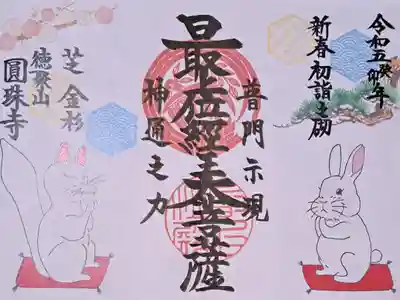 令和五癸卯年
新春初詣之砌
普門示現
最位經王大菩薩
神通之力
芝 金杉
徳聚山
圓珠寺